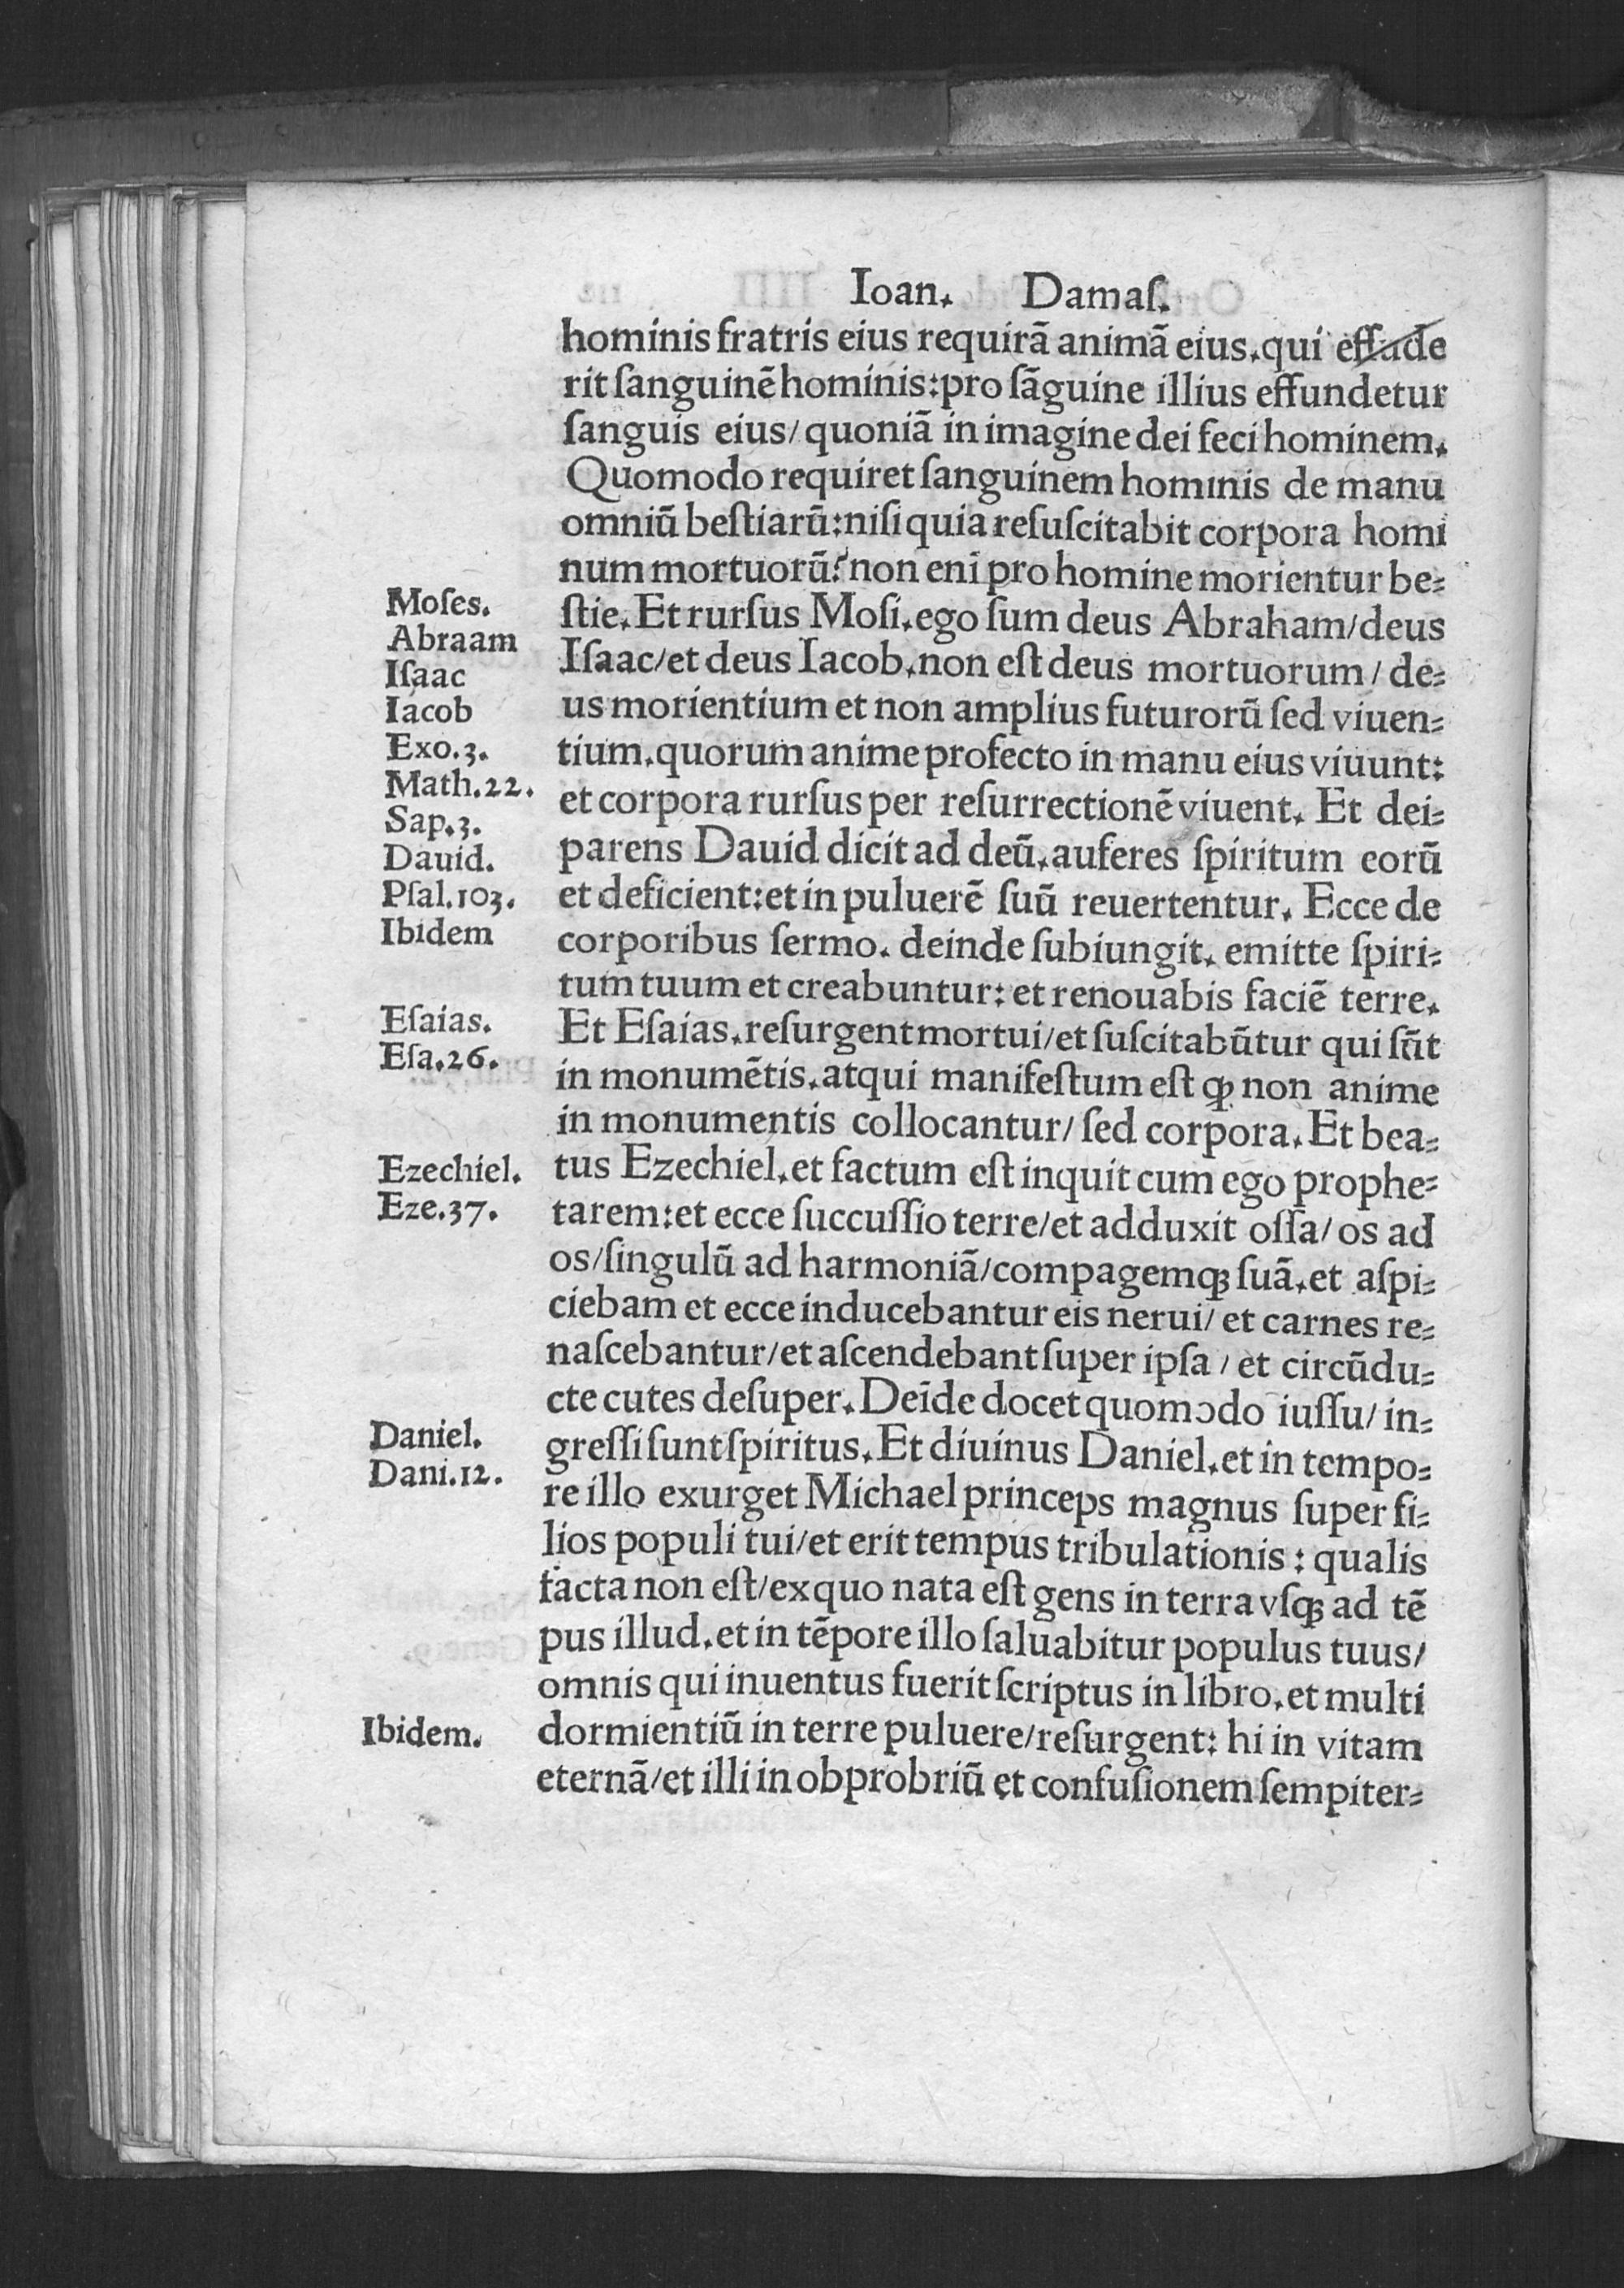 Ioan. Damaſ.
hominis fratris eius requirã animã eius. qui effude
rit ſanguinẽ hominis: pro ſãguine illius effundetur
ſanguis eius/ quoniã in imagine dei feci hominem.
Quomodo requiret ſanguinem hominis de manu
omniũ beſtiarũ: niſi quia reſuſcitabit corpora homi
num mortuorũ? non eni pro homine morientur be⸗
Moſes.
ſtie. Et rurſus Moſi. ego ſum deus Abraham/ deus
Abraam
Iſaac/ et deus Iacob. non eſt deus mortuorum/ de⸗
Iſaac
Iacob
us morientium et non amplius futurorũ ſed viuen⸗
Exo.3.
tium. quorum anime profecto in manu eius viuunt:
Math.22.
et corpora rurſus per reſurrectionẽ viuent. Et dei⸗
Sap.3.
Dauid.
parens Dauid dicit ad deũ. auferes ſpiritum eorũ
Pſal.103.
et deficient: et in puluerẽ ſuũ reuertentur. Ecce de
Ibidem
corporibus ſermo. deinde ſubiungit. emitte ſpiri⸗
tum tuum et creabuntur: et renouabis faciẽ terre.
Eſaias.
Et Eſaias. reſurgent mortui/ et ſuſcitabũtur qui ſũt
Eſa.26.
in monumẽtis. atqui manifeſtum eſt ꝙ non anime
in monumentis collocantur/ ſed corpora. Et bea⸗
Ezechiel.
tus Ezechiel. et factum eſt inquit cum ego prophe⸗
Eze.37.
tarem: et ecce ſuccuſſio terre/ et adduxit oſſa/ os ad
os/ ſingulũ ad harmoniã/ compagemqꝫ ſuã. et aſpi⸗
ciebam et ecce inducebantur eis nerui/ et carnes re⸗
naſcebantur/ et aſcendebant ſuper ipſa/ et circũdu⸗
cte cutes deſuper. Deĩde docet quomodo iuſſu/ in⸗
Daniel.
greſſi ſunt ſpiritus. Et diuinus Daniel. et in tempo⸗
Dani.12.
re illo exurget Michael princeps magnus ſuper fi⸗
lios populi tui/ et erit tempus tribulationis: qualis
facta non eſt/ ex quo nata eſt gens in terra vſqꝫ ad tẽ
pus illud. et in tẽpore illo ſaluabitur populus tuus/
omnis qui inuentus fuerit ſcriptus in libro. et multi
Ibidem.
dormientiũ in terre puluere/ reſurgent: hi in vitam
eternã/ et illi in obprobriũ et confuſionem ſempiter⸗